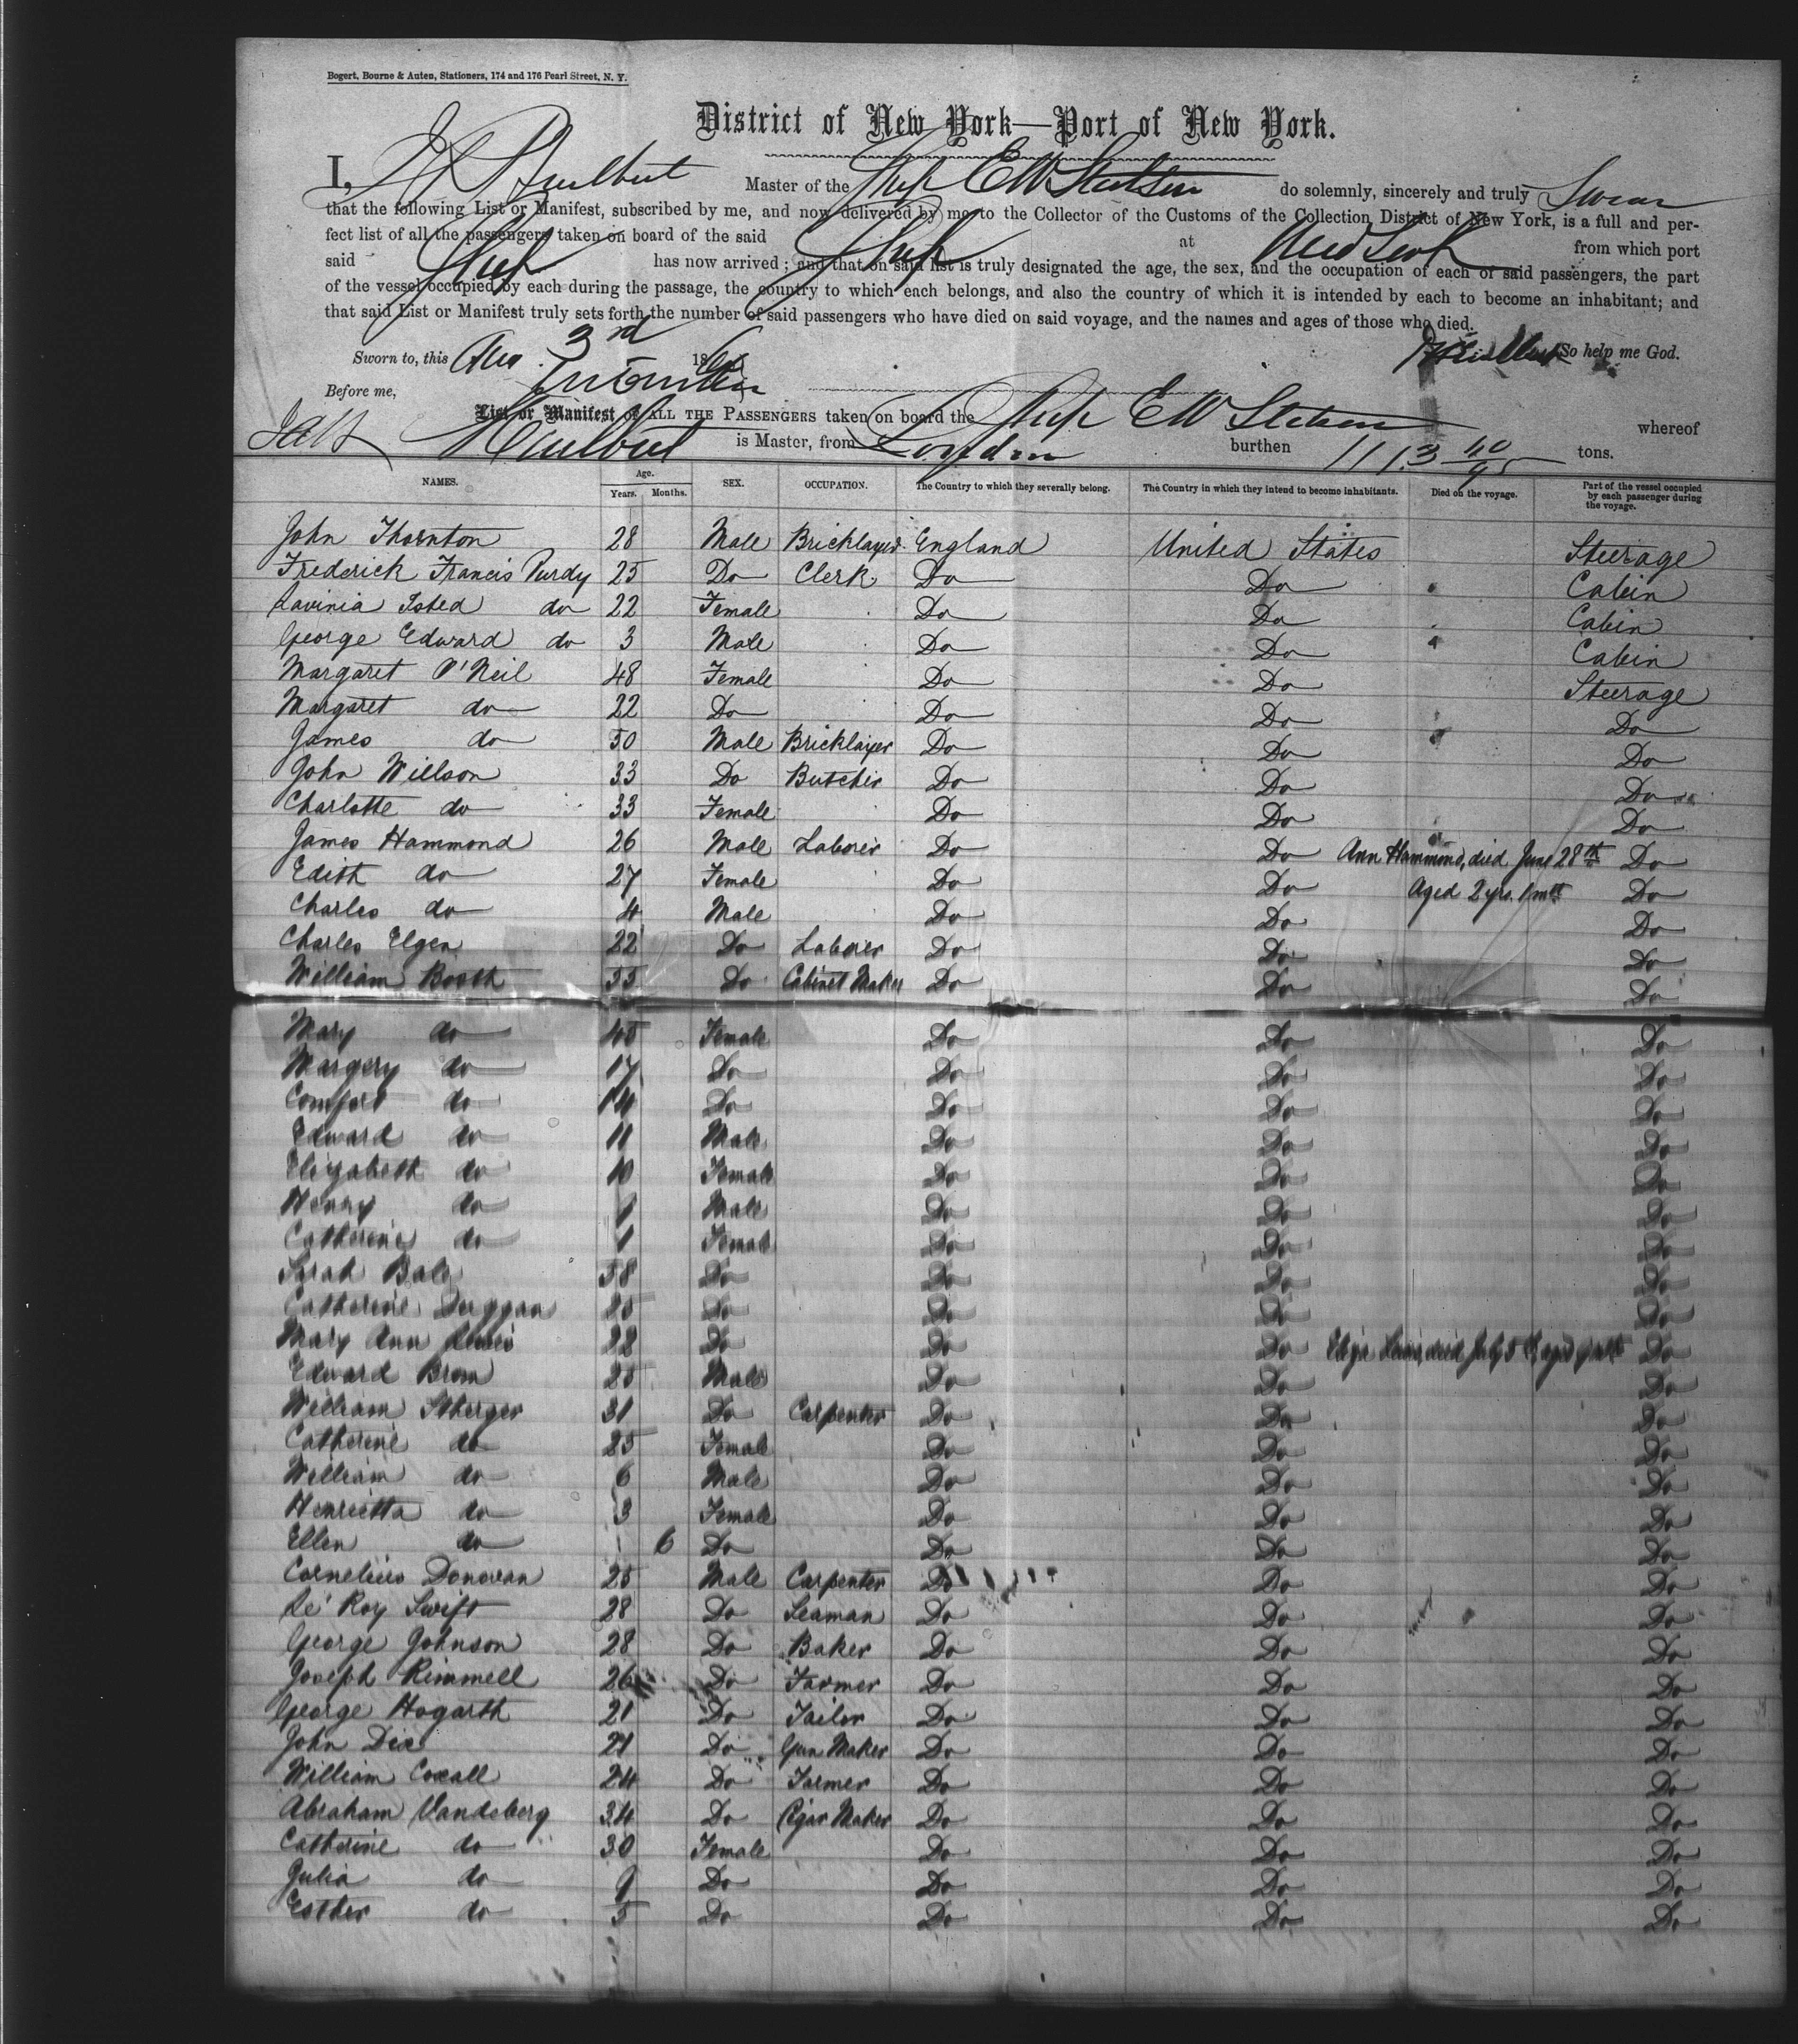 Bogert, Bourne & Auten, Stationers, 174 and 176 Pearl Street, N. Y.
District of New York—Port of New York.
I, Hulbut Master of the Ship E W Stetson do solemnly, sincerely and truly Swear
that the following List or Manifest, subscribed by me, and now delivered by me to the Collector of the Customs of the Collection District of New York, is a full and per-
fect list of all the passengers taken on board of the said Ship at New York from which port
said Ship has now arrived; and that on said list is truly designated the age, the sex, and the occupation of each of said passengers, the part
of the vessel occupied by each during the passage, the country to which each belongs, and also the country of which it is intended by each to become an inhabitant; and
that said List or Manifest truly sets forth the number of said passengers who have died on said voyage, and the names and ages of those who died.
Sworn to, this Aug 3rd 186 So help me God.
Before me,
List or Manifest of ALL THE PASSENGERS taken on board the Ship E W Stetson whereof
Hulbut is Master, from London burthen 1113 40/95 tons.
NAMES. Age. Years. Months. SEX. OCCUPATION. The Country to which they severally belong. The Country in which they intend to become inhabitants. Died on the voyage. Part of the vessel occupied by each passenger during the voyage.
John Thornton 28 Male Bricklayer England United States Steerage
Frederick Francis Purdy 25 Do Clerk Do Do Cabin
Lavinia Isted do 22 Female Do Do Cabin
George Edward do 3 Male Do Do Cabin
Margaret O'Neil 48 Female Do Do Steerage
Margaret do 22 Do Do Do Do
James do 50 Male Bricklayer Do Do Do
John Willson 33 Do Butcher Do Do Do
Charlotte do 33 Female Do Do Do
James Hammond 26 Male Laborer Do Do Ann Hammond, died June 28th Do
Edith do 27 Female Do Do Aged 2 yrs. 1 mth Do
Charles do 4 Male Do Do Do
Charles Elgen 22 Do Laborer Do Do Do
William Booth 55 Do Cabinet Maker Do Do Do
Mary do 40 Female Do Do Do
Margery do 17 Do Do Do Do
Comfort do 14 Do Do Do Do
Edward do 11 Male Do Do Do
Elizabeth do 10 Female Do Do Do
Henry do Male Do Do Do
Catherine do 1 Female Do Do Do
Sarah Bale 58 Do Do Do Do
Catherine Duggan 25 Do Do Do Do
Mary Ann Lewis 22 Do Do Do Eliza Lewis, died July 5th, aged 9 mth Do
Edward Brom 25 Male Do Do Do
William Stherger 31 Do Carpenter Do Do Do
Catherine do 25 Female Do Do Do
William do 6 Male Do Do Do
Henrietta do 3 Female Do Do Do
Ellen do 6 Do Do Do Do
Cornelius Donovan 25 Male Carpenter Do Do Do
Le' Roy Swift 28 Do Seaman Do Do Do
George Johnson 28 Do Baker Do Do Do
Joseph Rimmell 26 Do Farmer Do Do Do
George Hogarth 21 Do Tailor Do Do Do
John Dix 21 Do Gun Maker Do Do Do
William Coxall 24 Do Farmer Do Do Do
Abraham Vandeberg 34 Do Cigar Maker Do Do Do
Catherine do 30 Female Do Do Do
Julia do 9 Do Do Do Do
Esther do 5 Do Do Do Do